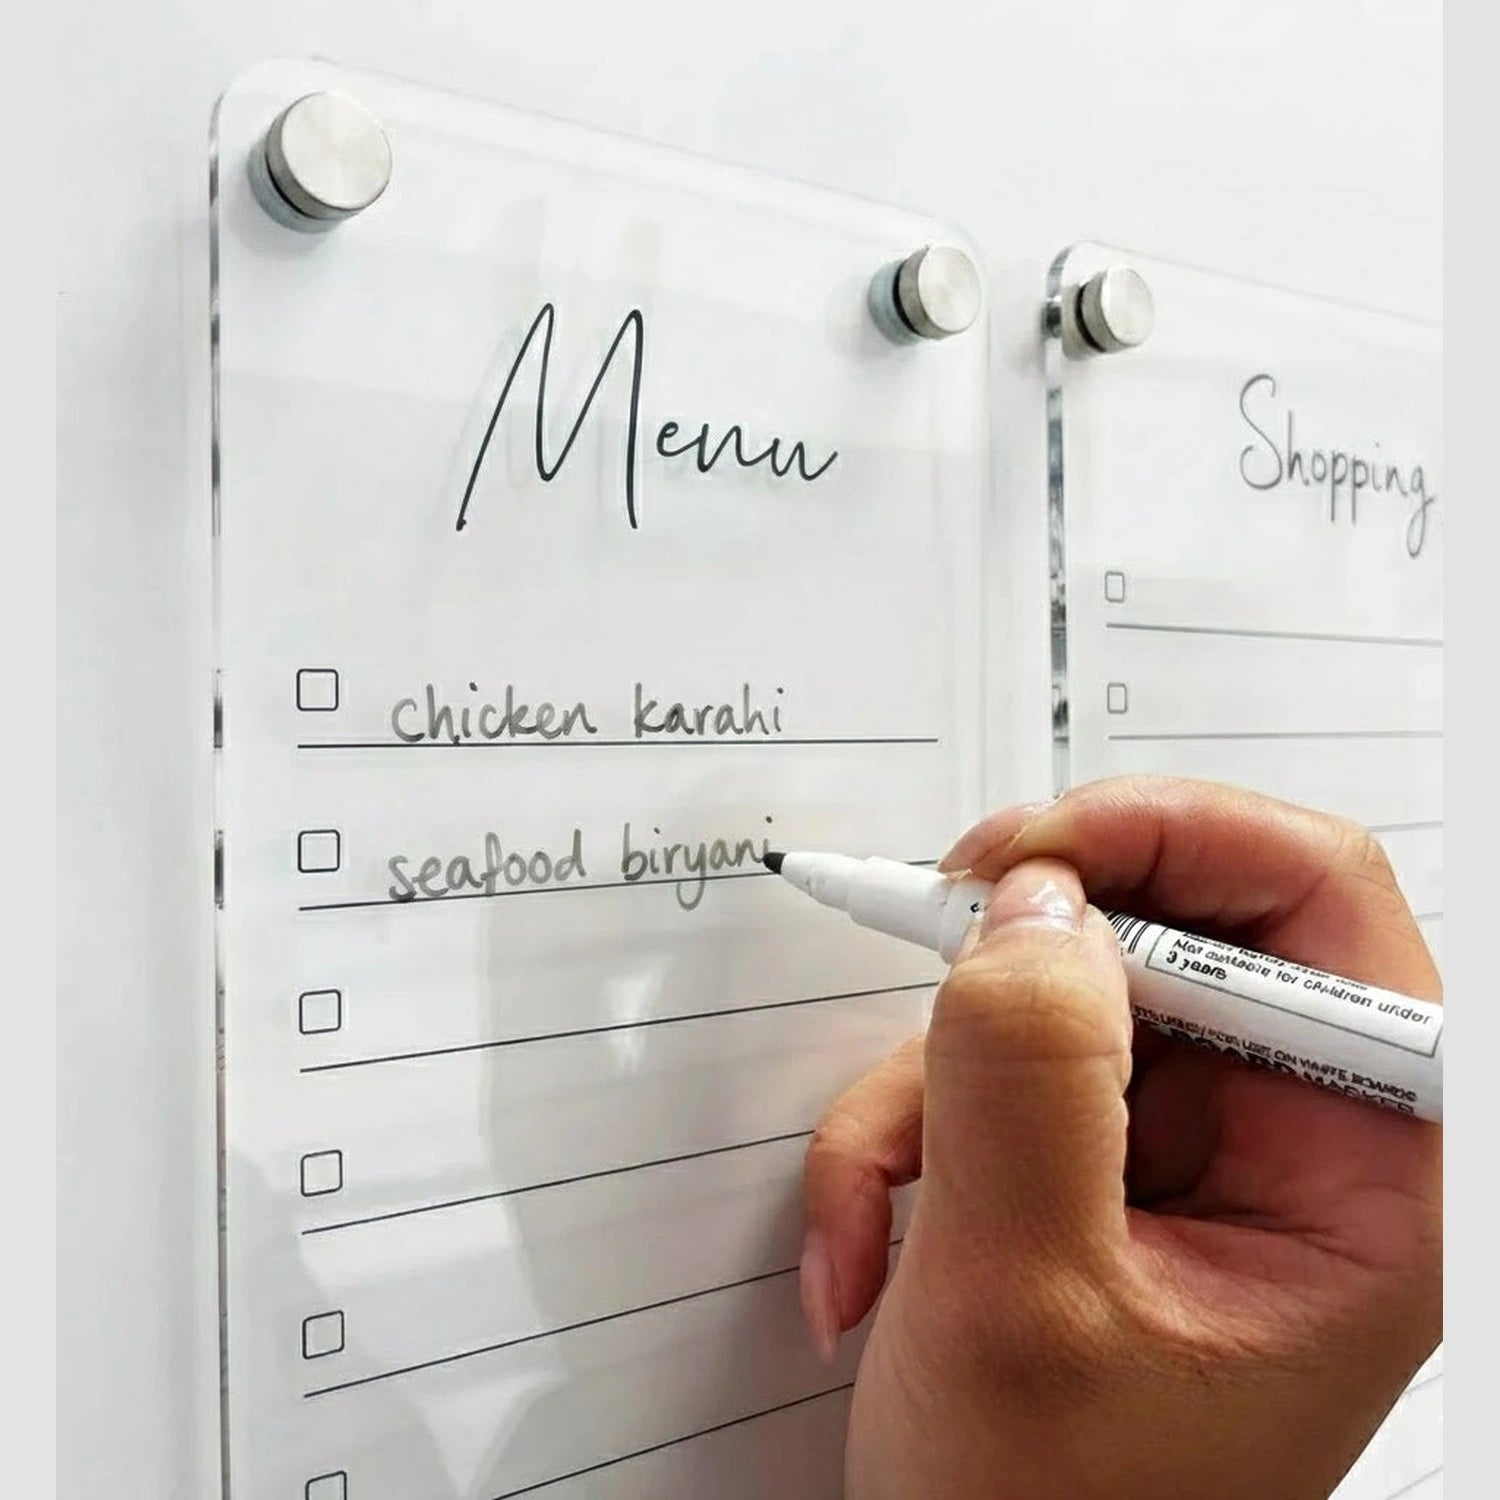 Menu
chicken karahi
seafood biryani
Shopping
Not suitable for children under
3 years
ON WHITE BOARDS
BOARD MARKER